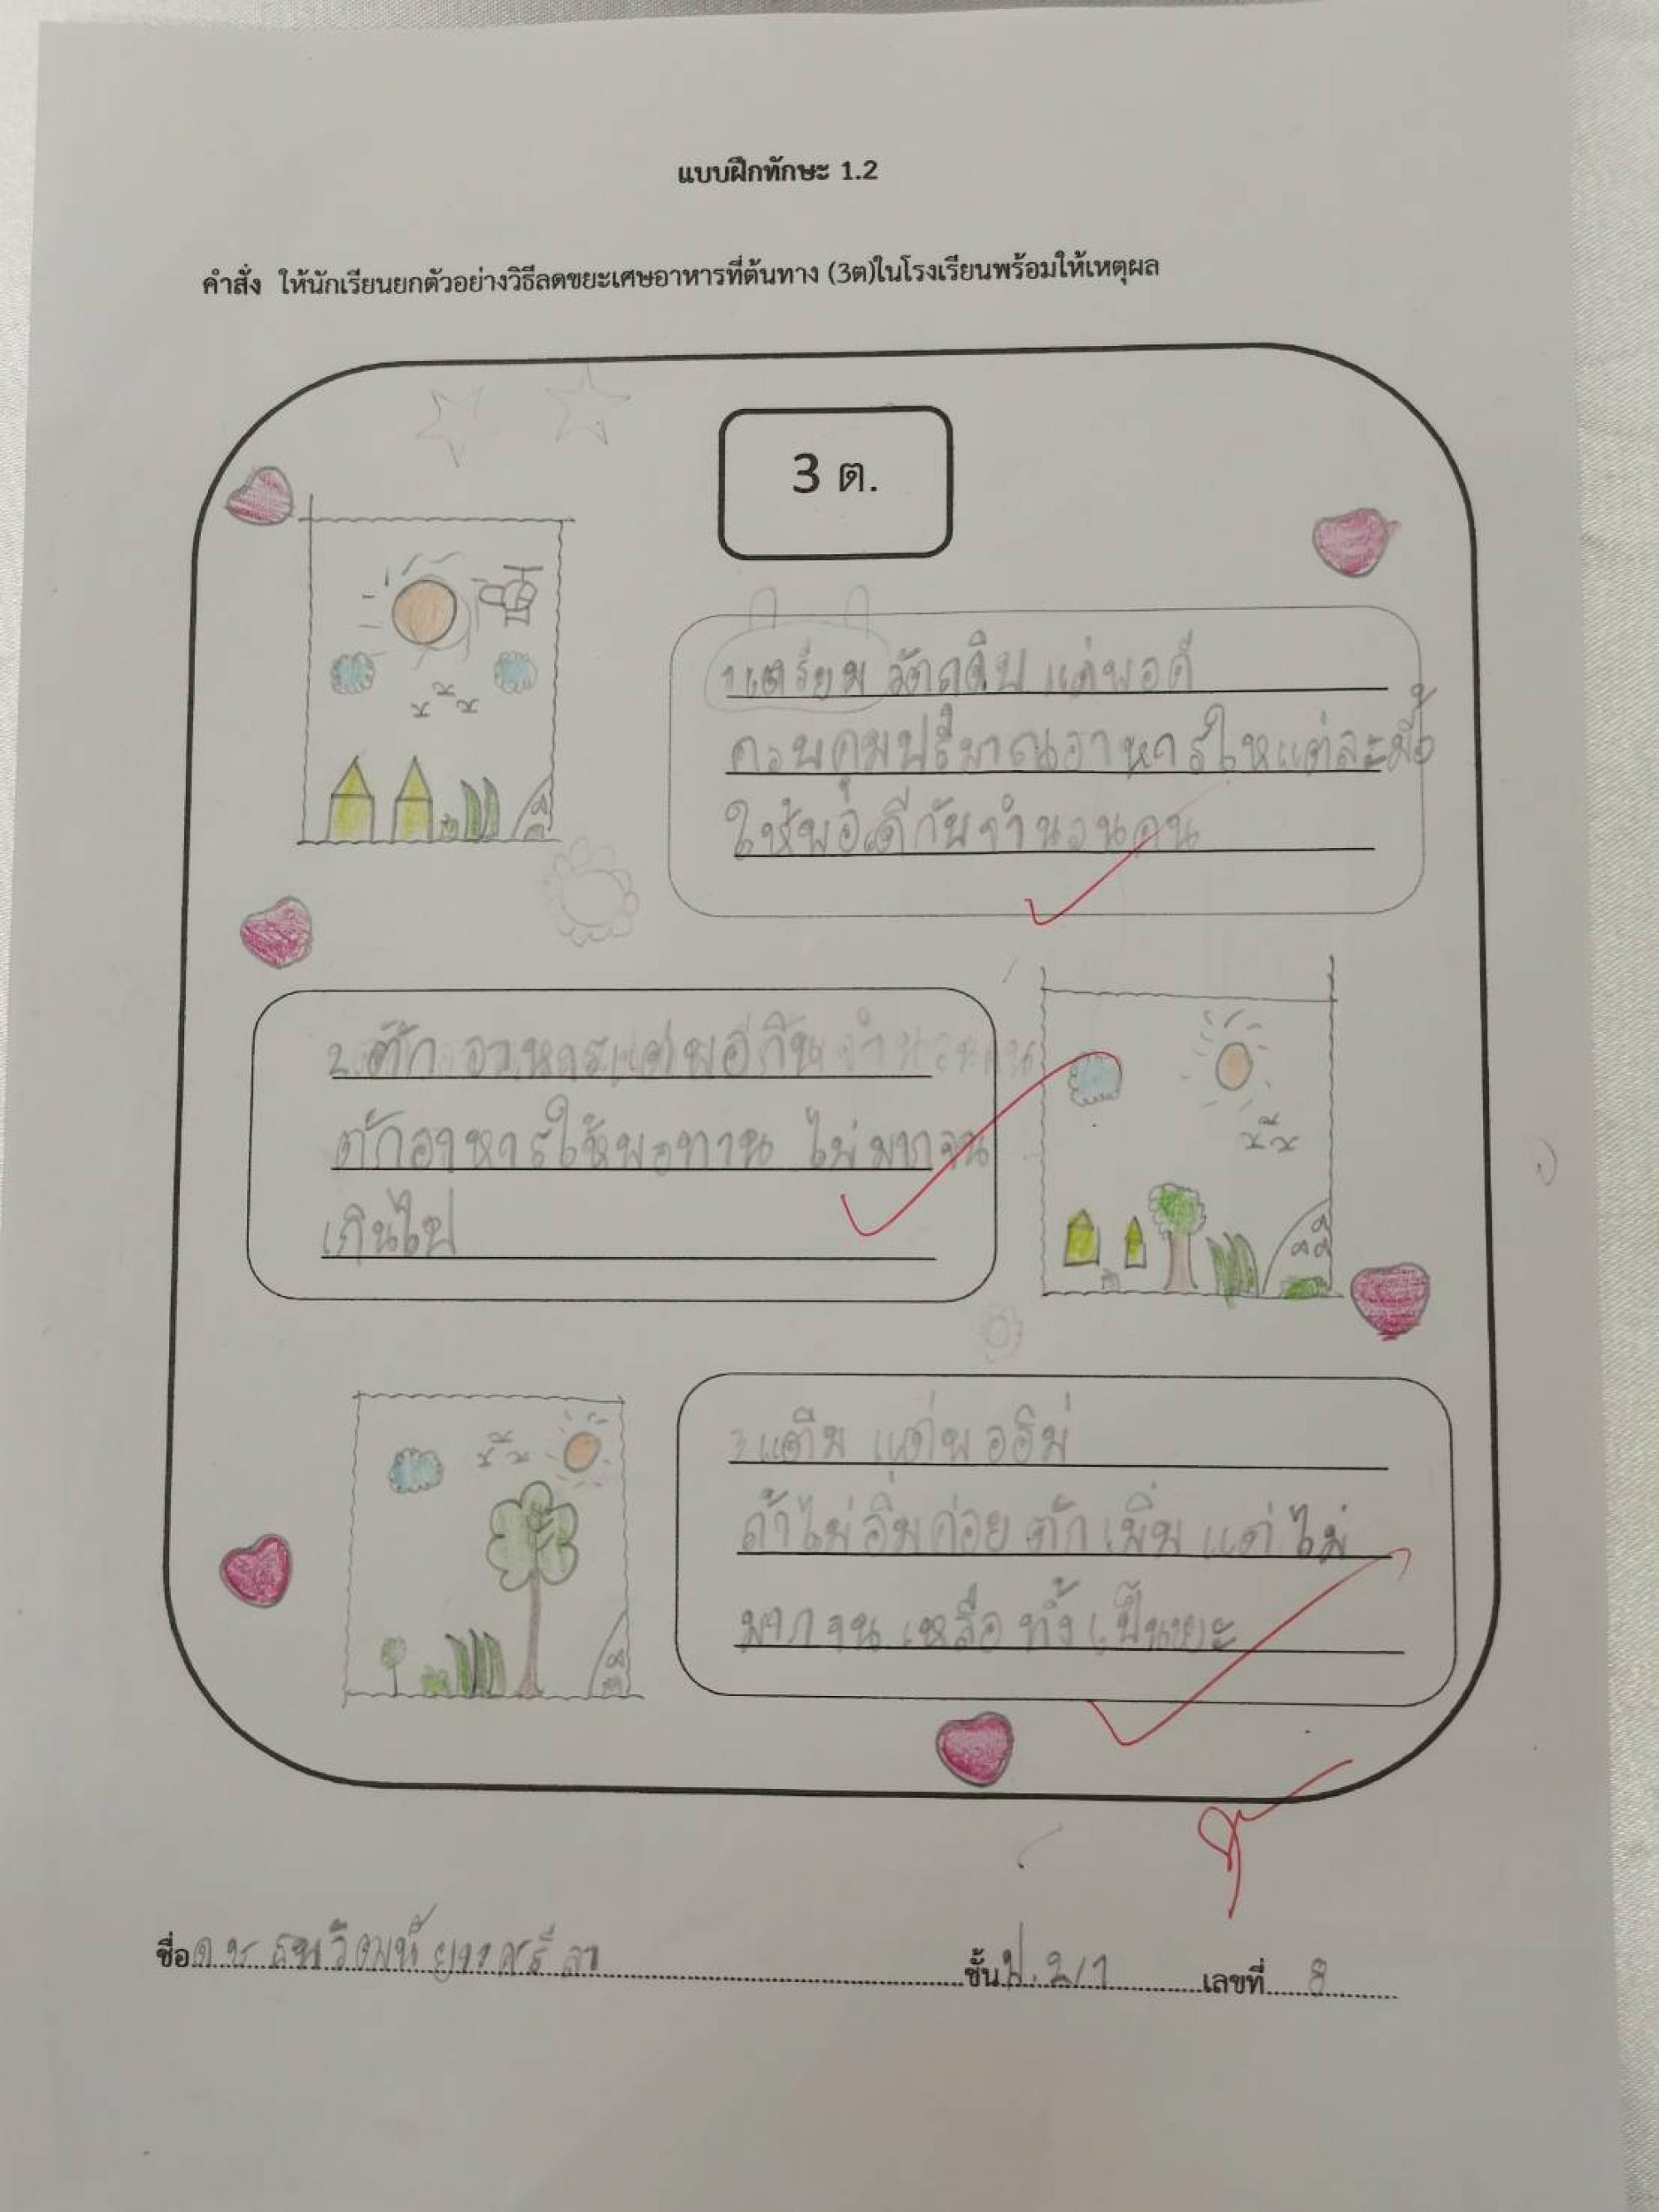 แบบฝึกทักษะ 1.2
คำสั่ง ให้นักเรียนยกตัวอย่างวิธีลดขยะเศษอาหารที่ต้นทาง (3ต)ในโรงเรียนพร้อมให้เหตุผล
3 ต.
1 เตรียม วัตถุดิบ แต่พอดี
ควบคุมปริมาณอาหารให้แต่ละมื้อ
ให้พอดีกับจำนวนคน
2. ตัก อาหารแต่พอดีกิน
ตักอาหารให้พอทาน ไม่มากจน
เกินไป
3 เติม แต่พออิ่ม
ถ้าไม่อิ่มค่อย ตัก เพิ่ม แต่ ไม่
มากจน เหลือ ทิ้ง เป็นขยะ
ชื่อ ด.ช. ชั้น ป.2/1 เลขที่ 8